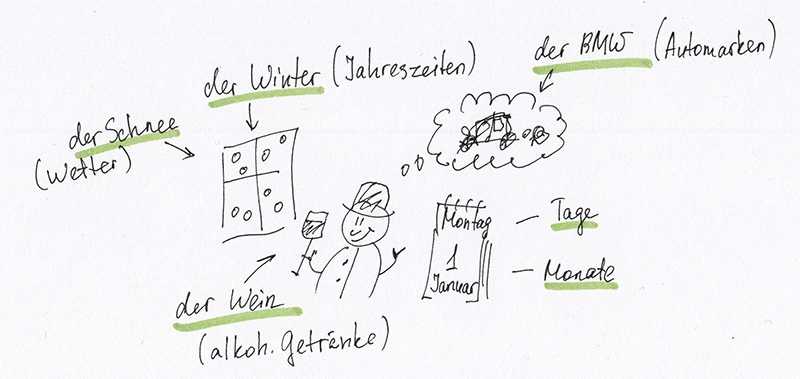 der BMW (Automarken)
der Winter (Jahreszeiten)
der Schnee
(Wetter)
Montag – Tage
1
Januar – Monate
der Wein
(alkoh. Getränke)